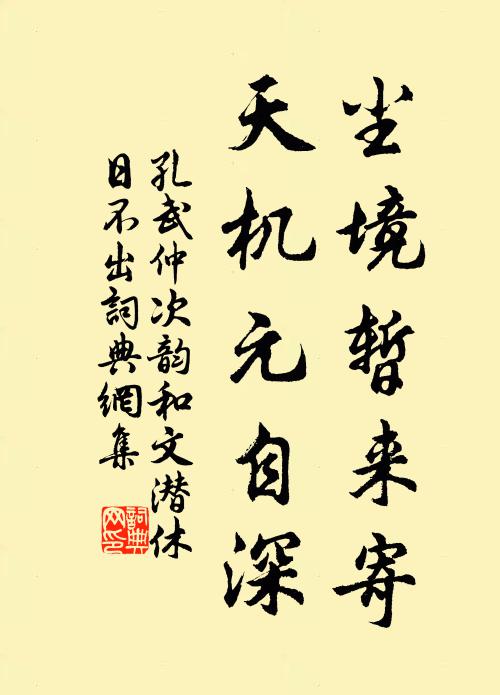 尘境暂来寄
天机元自深
孔武仲次韵和文潜休
日不出詞典網集
詞典
网印